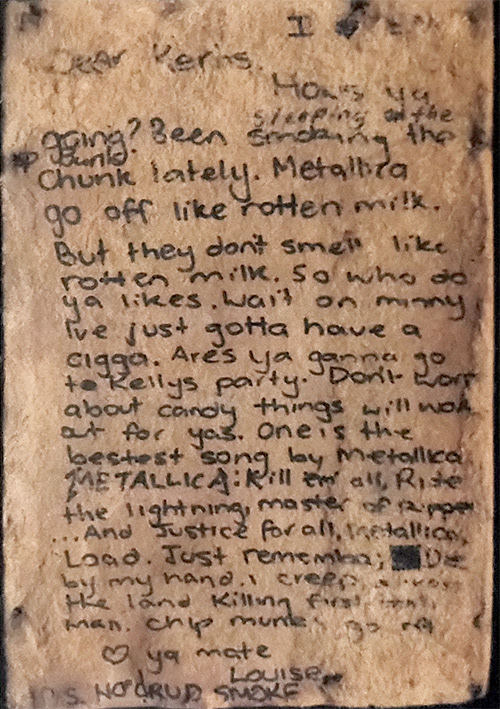 I
Dear Kerins.
How's ya
sleeping on the
going? Been smoking the
bunk.
chunk lately. Metallica
go off like rotten milk.
But they don't smell like
rotten milk. So who do
ya likes. Wait on minny
I've just gotta have a
cigga. Ares ya ganna go
to Kellys party. Don't worr
about candy things will work
out for yas. One is the
bestest song by Metallica
METALLICA: Kill em all, Ride
the lightning, master of puppe
...And Justice for all, metallica,
Load. Just rememba; Die
by my hand. I creep across
the land Killing first
man. Chip go off
♡ ya mate
Louise
P.S. NO DRUD SMOKE